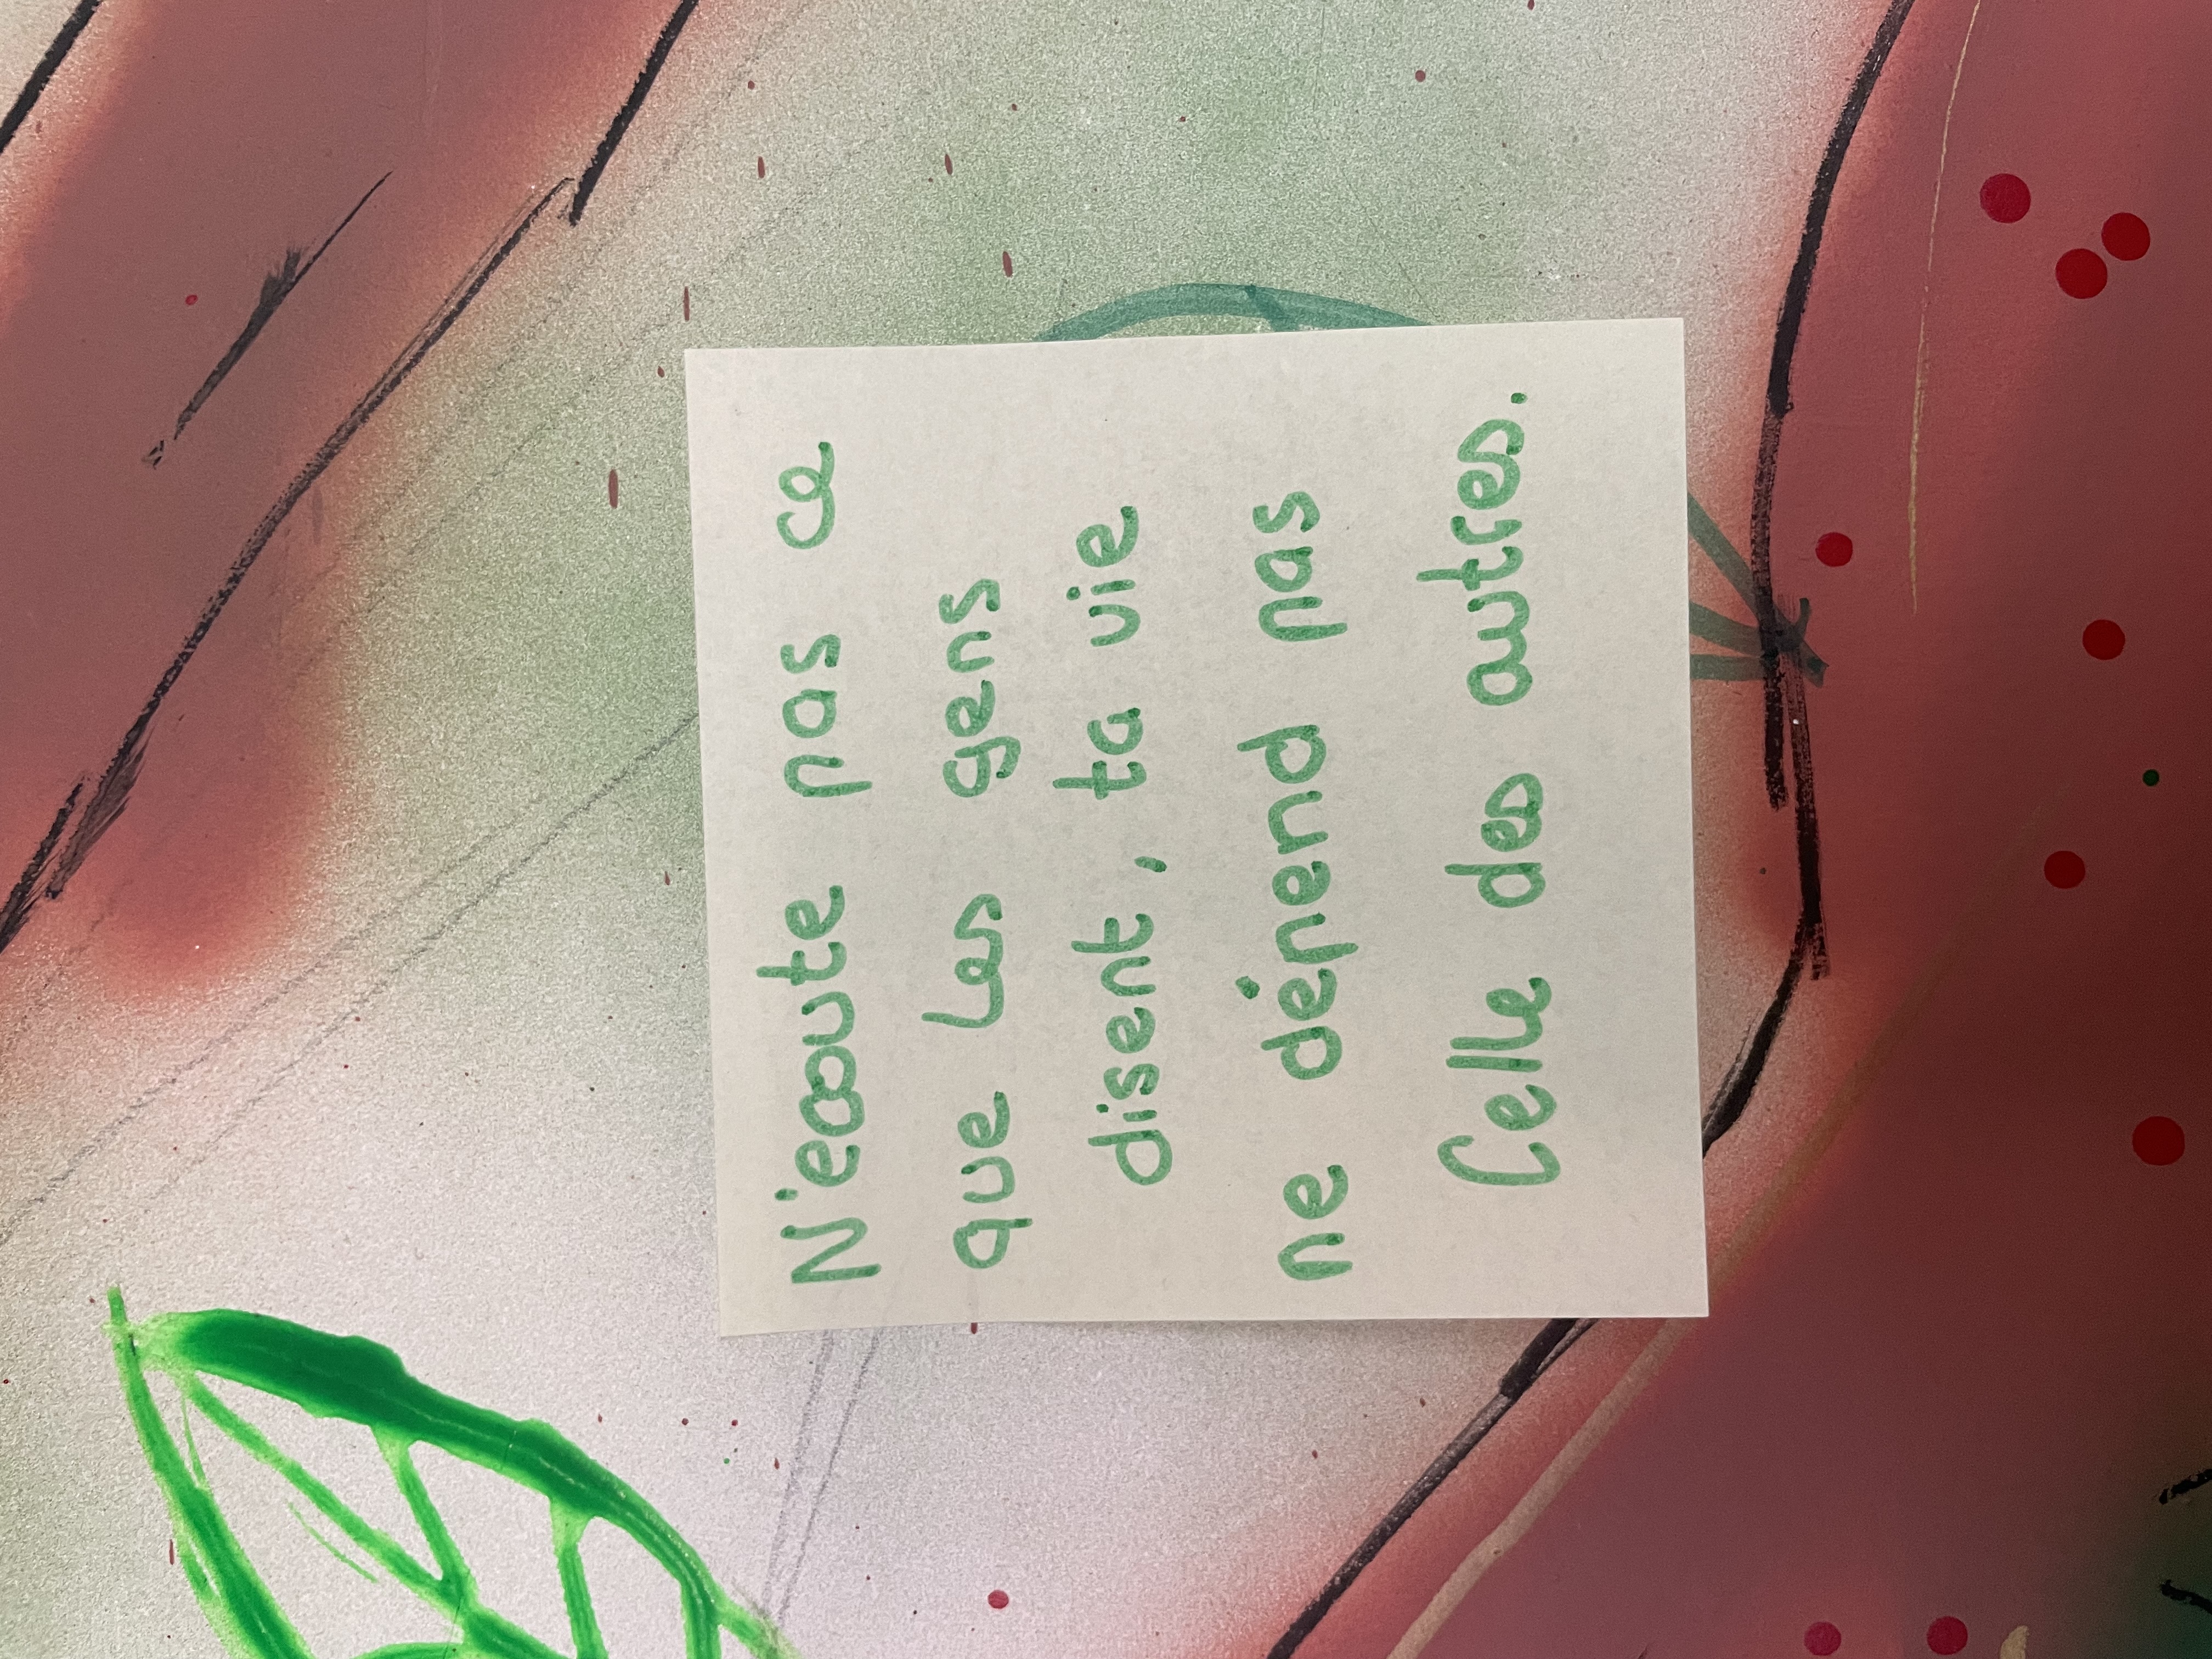 N'ecoute pas ce
que les gens
disent, ta vie
ne dépend pas
Celle des autres.